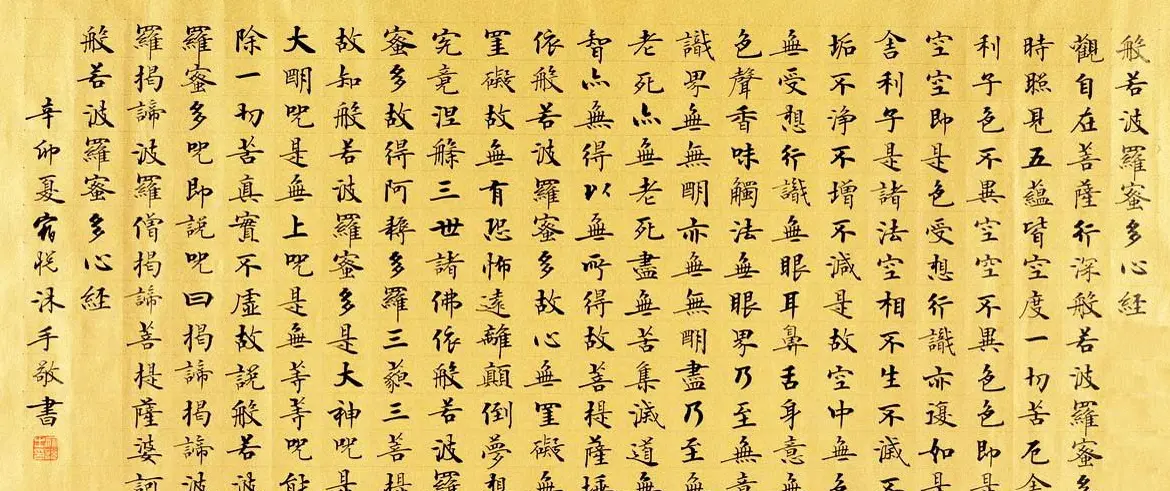 般若波羅蜜多心経
觀自在菩薩行深般若波羅蜜多
時照見五蘊皆空度一切苦厄舍
利子色不異空空不異色色即是
空空即是色受想行識亦復如是
舎利子是諸法空相不生不滅不
垢不浄不增不減是故空中無色
無受想行識無眼耳鼻舌身意無
色聲香味觸法無眼界乃至無意
識界無無明亦無無明盡乃至無
老死亦無老死盡無苦集滅道無
智亦無得以無所得故菩提薩埵
依般若波羅蜜多故心無罣礙無
罣礙故無有恐怖遠離顛倒夢想
究竟涅槃三世諸佛依般若波羅
蜜多故得阿耨多羅三藐三菩提
故知般若波羅蜜多是大神咒是
大明咒是無上咒是無等等咒能
除一切苦真實不虛故説般若波
羅蜜多咒即説咒曰揭諦揭諦波
羅揭諦波羅僧揭諦菩提薩婆訶
般若波羅蜜多心経
辛卯夏宿悦沐手敬書